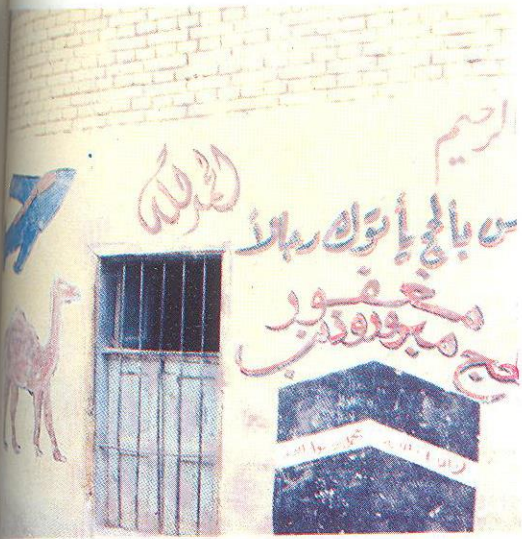 الرحيم
الحمد لله
س بالحج يأتوك رجالاً
مغفور
حج مبرور وذنب